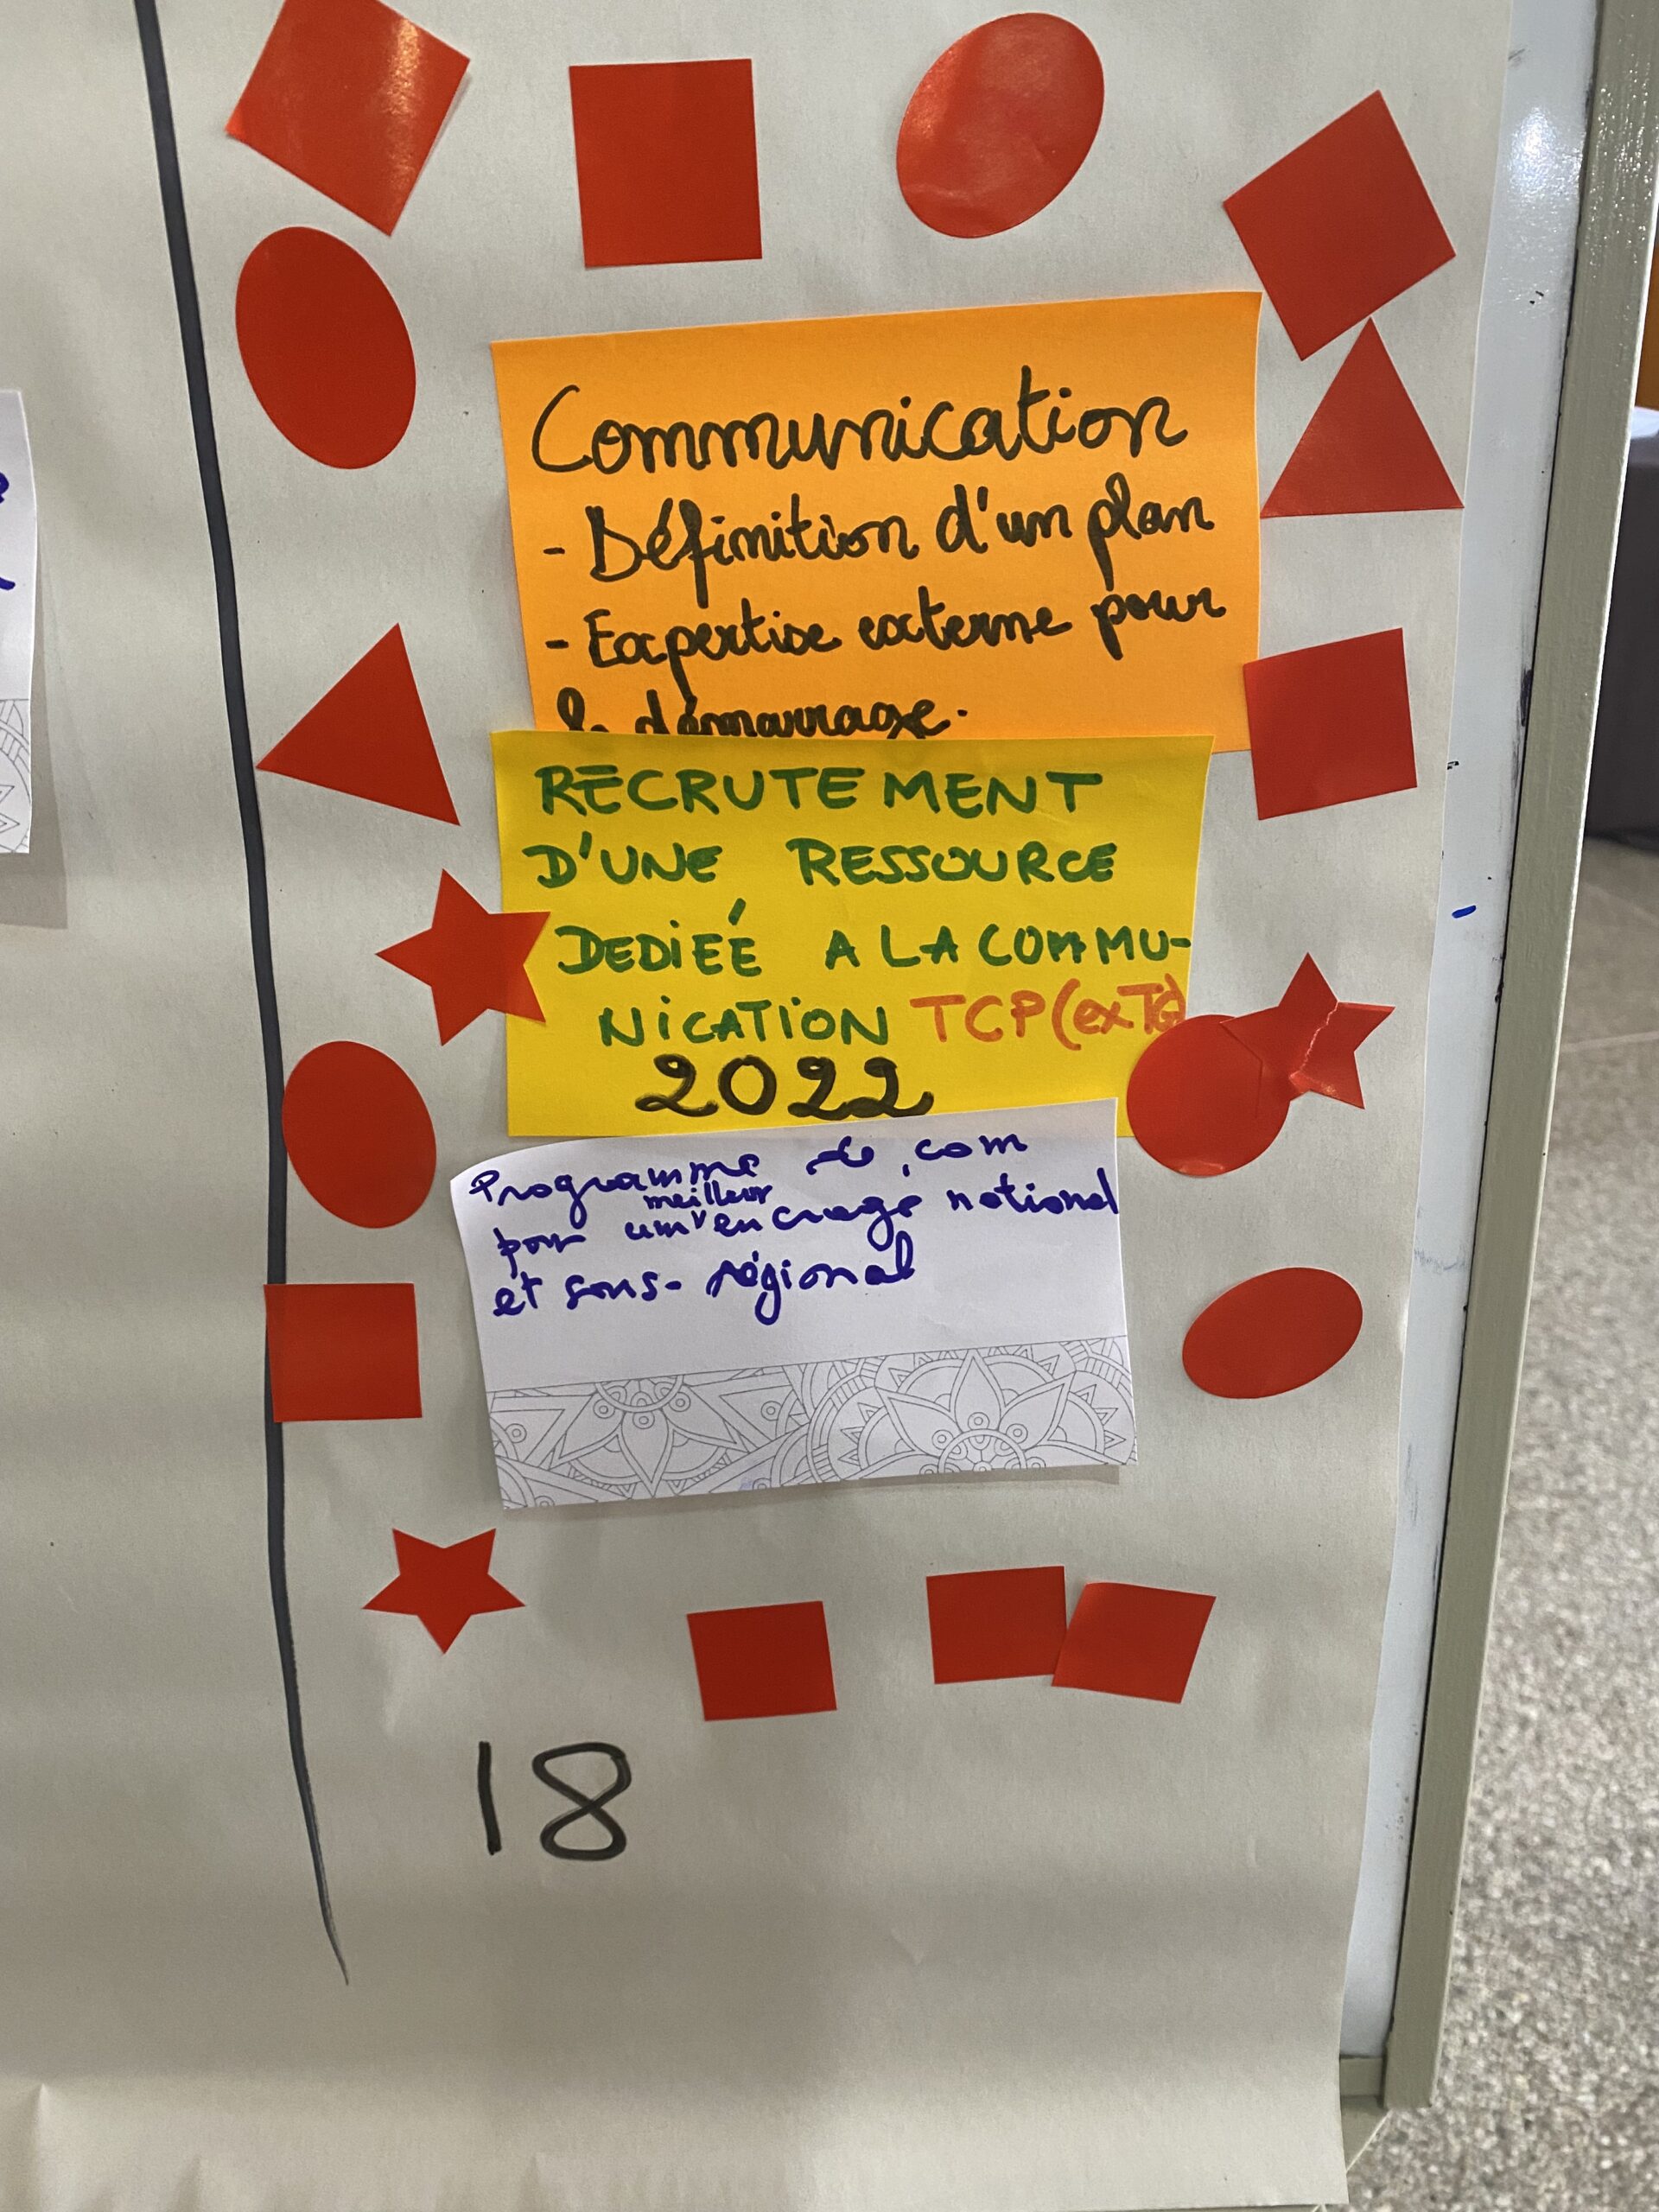 Communication
- Définition d'un plan
- Expertise externe pour
le démarrage.
RECRUTEMENT
D'UNE RESSOURCE
DEDIEÉ A LA COMMU-
NICATION TCP (ex TG)
2022
Programme de com
meilleur
pour un encrage national
et sous-régional
18